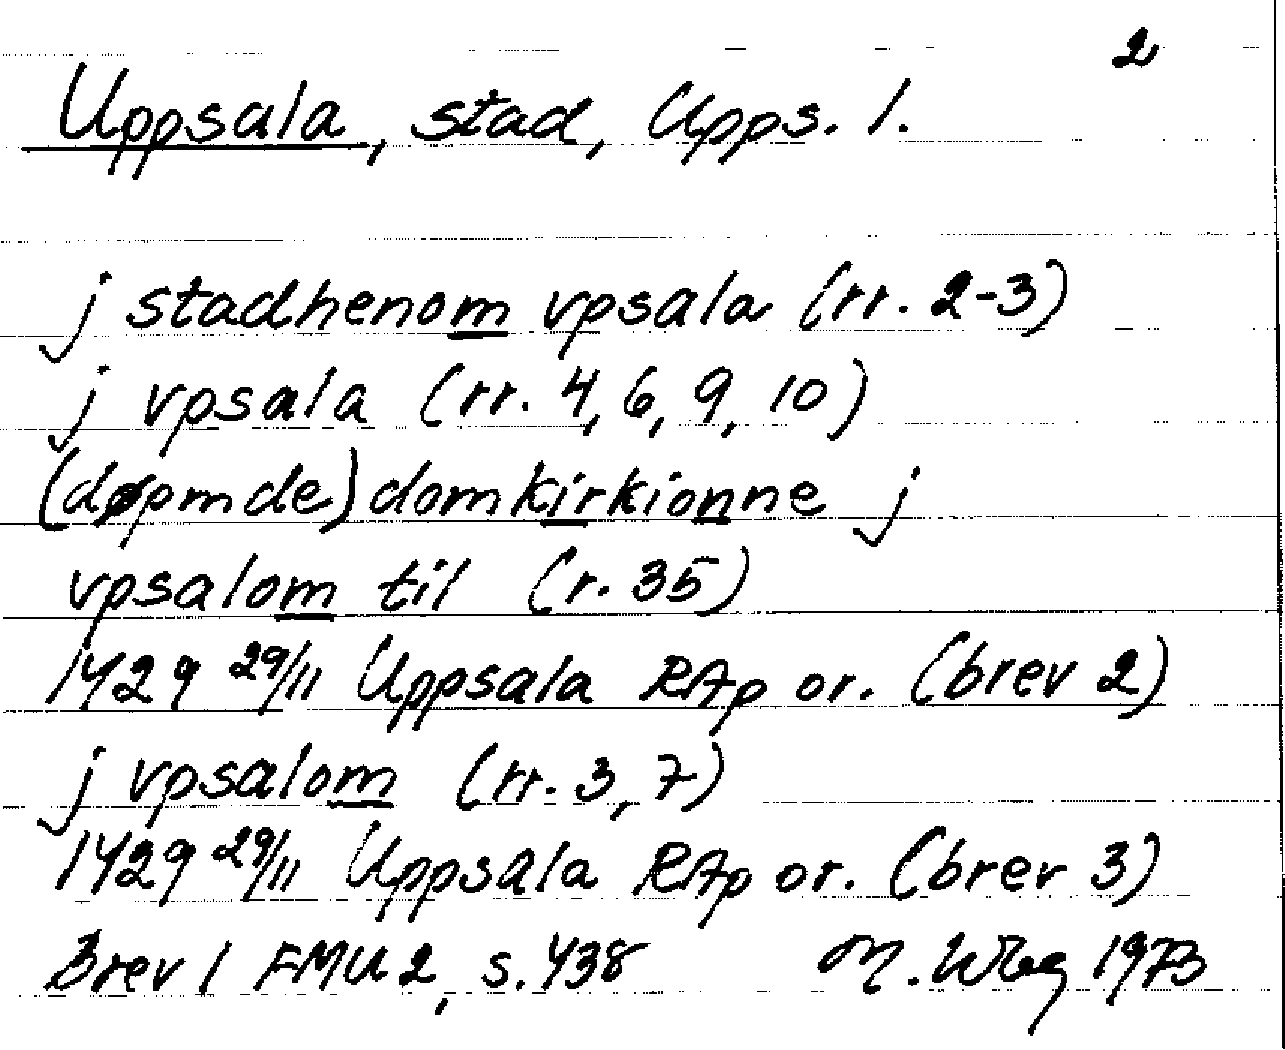 2
Uppsala, stad, Upps. l.
j stadhenom vpsala (rr. 2-3)
j vpsala (rr. 4, 6, 9, 10)
(døpmde) domkirkionne j
vpsalom til (r. 35)
1429 29/11 Uppsala RAp or. (brev 2)
j vpsalom (rr. 3, 7)
1429 29/11 Uppsala RAp or. (brev 3)
Brev 1 FMU 2, s. 438 M. Wbg 1973